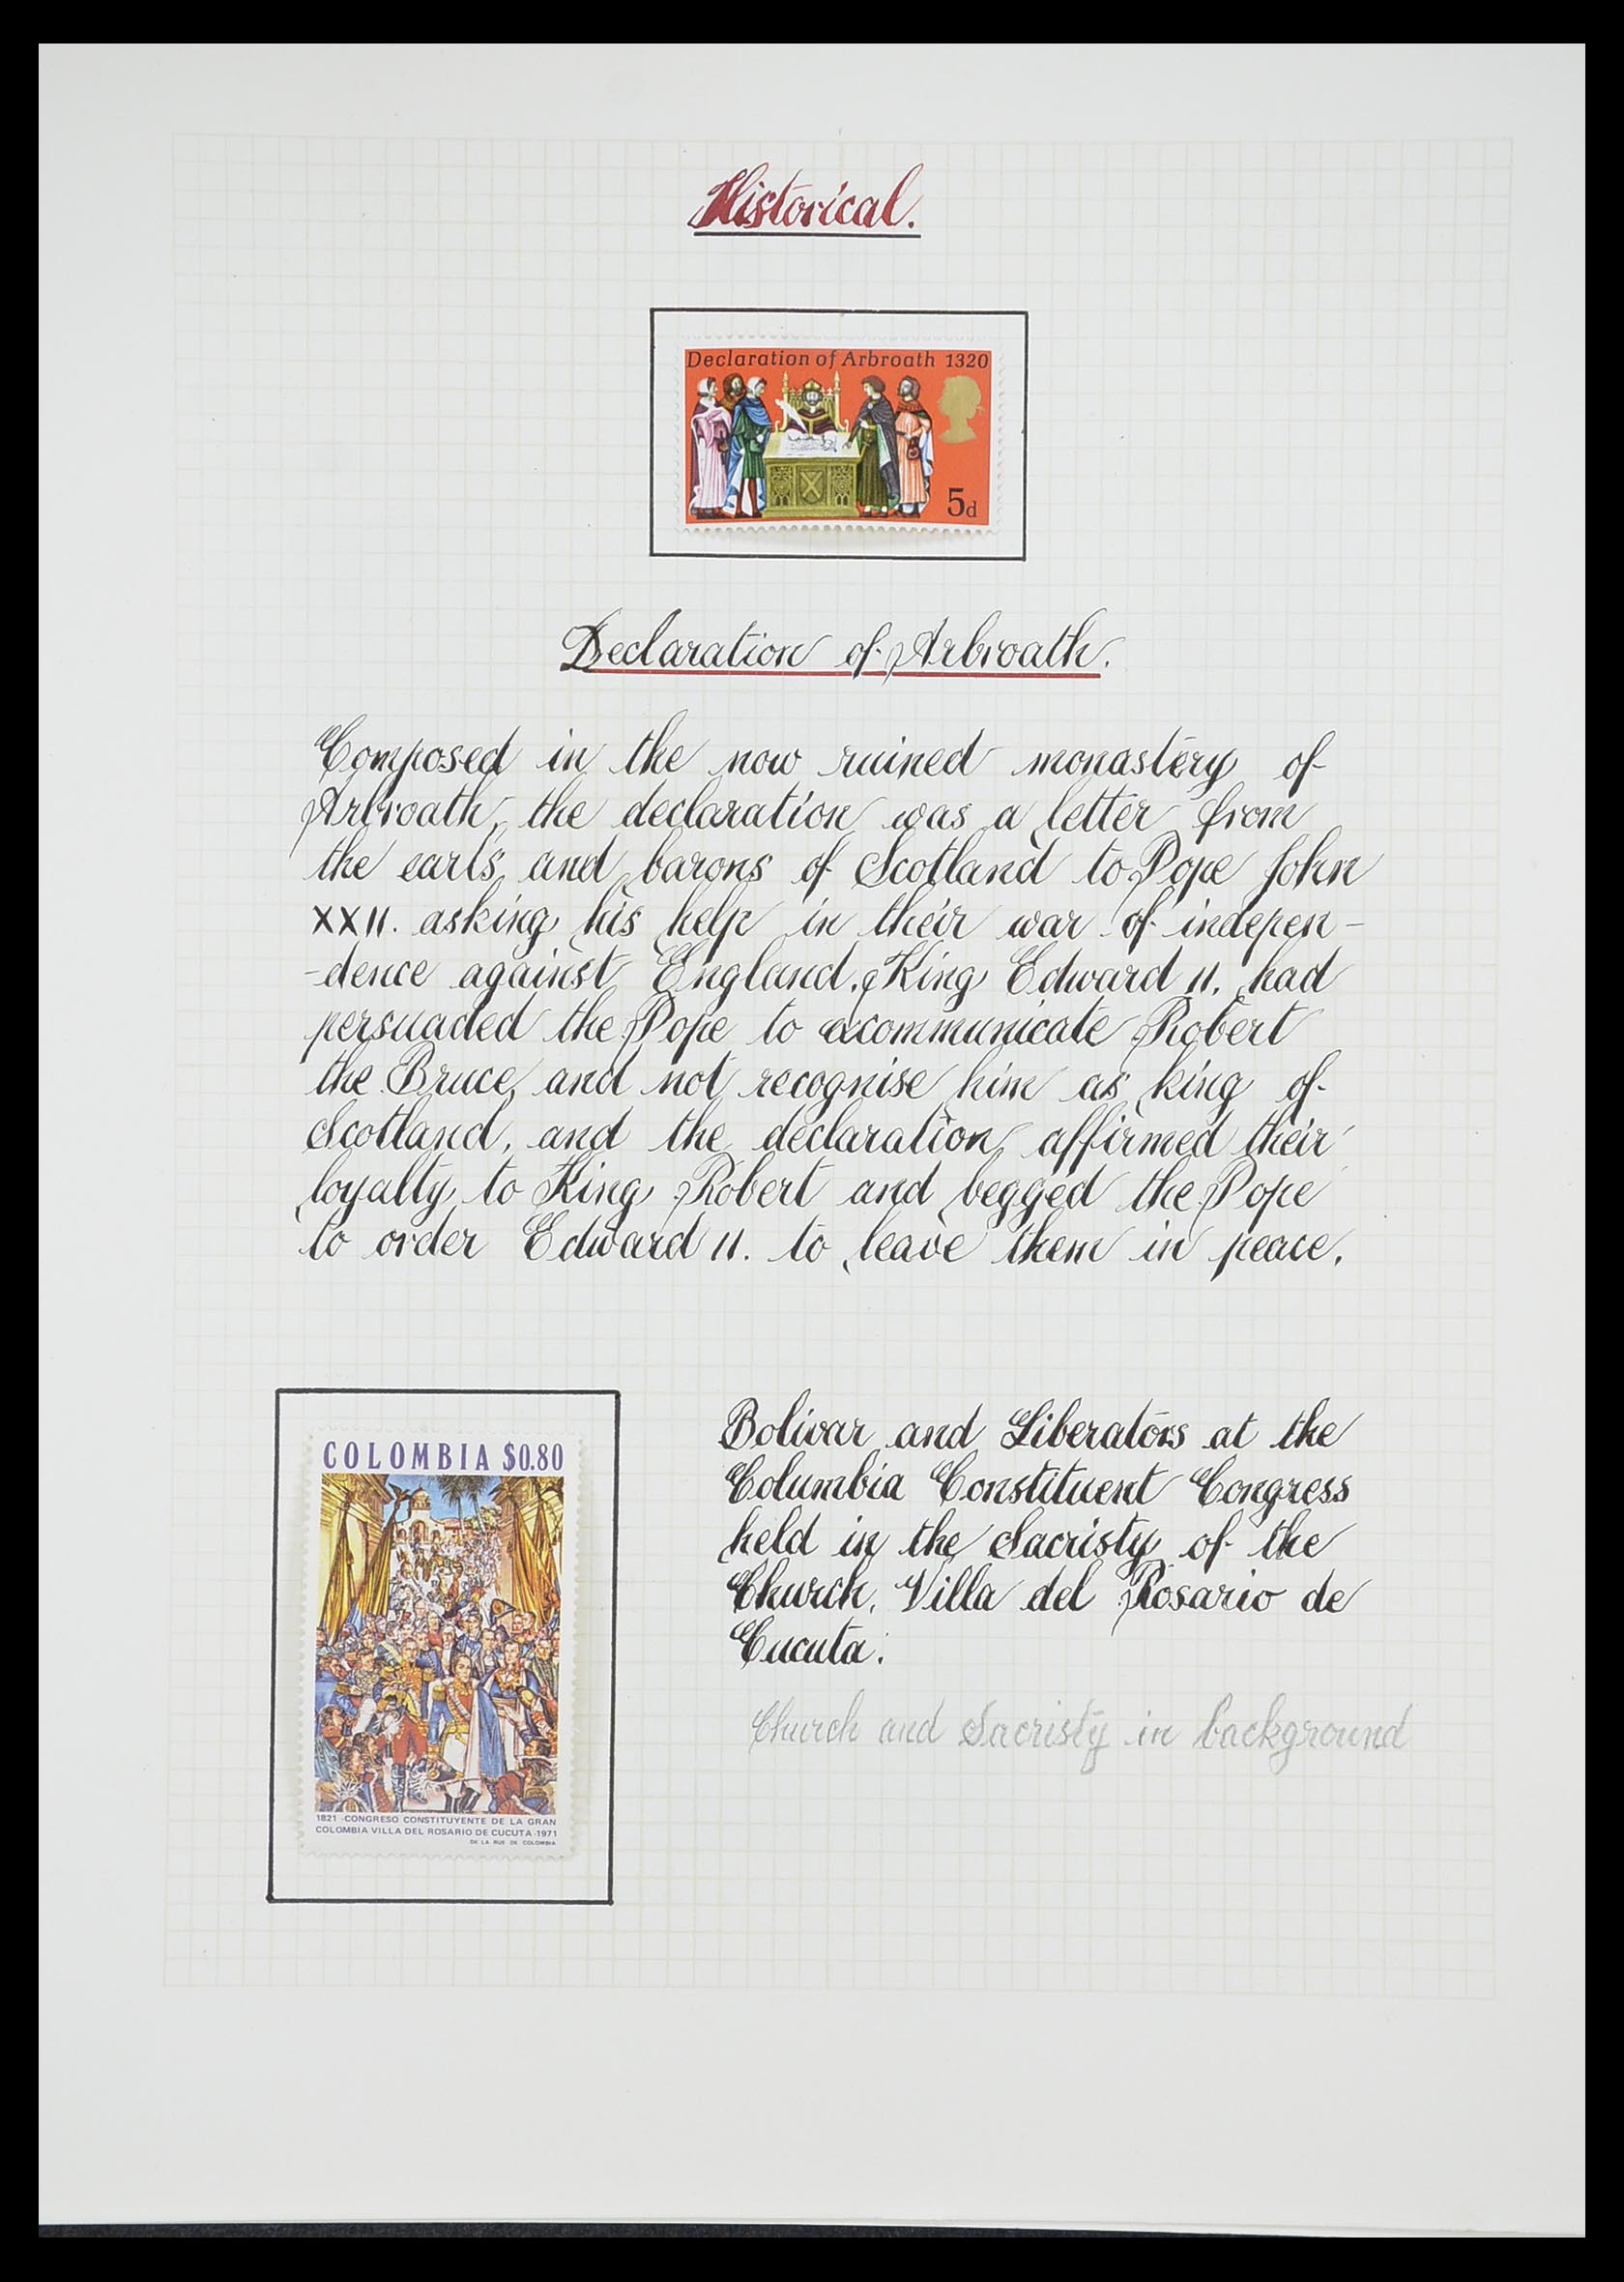 Historical.
Declaration of Arbroath 1320
5d
Declaration of Arbroath.
Composed in the now ruined monastery of
Arbroath, the declaration was a letter from
the earls and barons of Scotland to Pope John
XXII. asking his help in their war of indepen-
-dence against England. King Edward II. had
persuaded the Pope to excommunicate Robert
the Bruce, and not recognise him as king of
Scotland, and the declaration affirmed their
loyalty to King Robert and begged the Pope
to order Edward II. to leave them in peace.
COLOMBIA $0.80
1821 - CONGRESO CONSTITUYENTE DE LA GRAN
COLOMBIA VILLA DEL ROSARIO DE CUCUTA - 1971
DE LA RUE DE COLOMBIA
Bolivar and Liberators at the
Columbia Constituent Congress
held in the Sacristy of the
Church, Villa del Rosario de
Cucuta.
Church and Sacristy in background